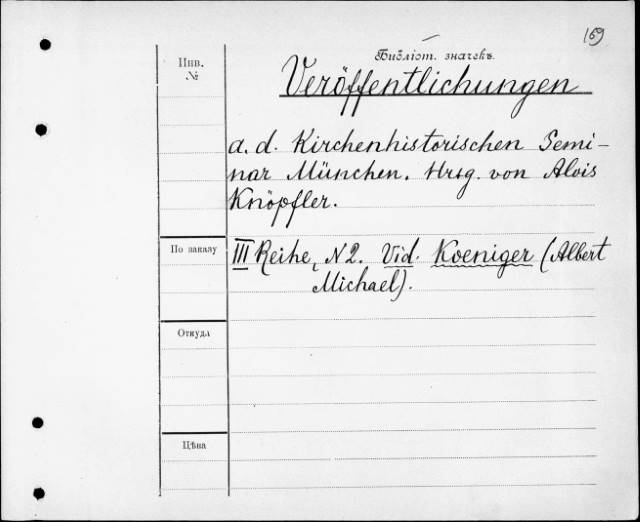 169
Библіот. значекъ.
Инв.
№
Veröffentlichungen
a. d. Kirchenhistorischen Semi-
nar München. Hrsg. von Alois
Knöpfler.
По заказу
III Reihe, N 2. Vid. Koeniger (Albert
Michael).
Откуда
Цѣна